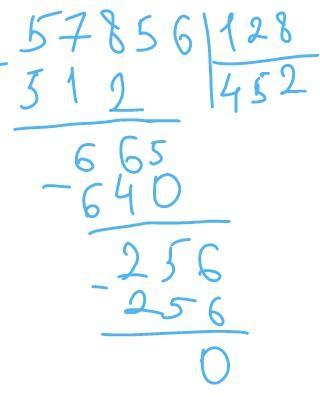 - 57856 | 128
512 | 452
665
- 640
256
- 256
0